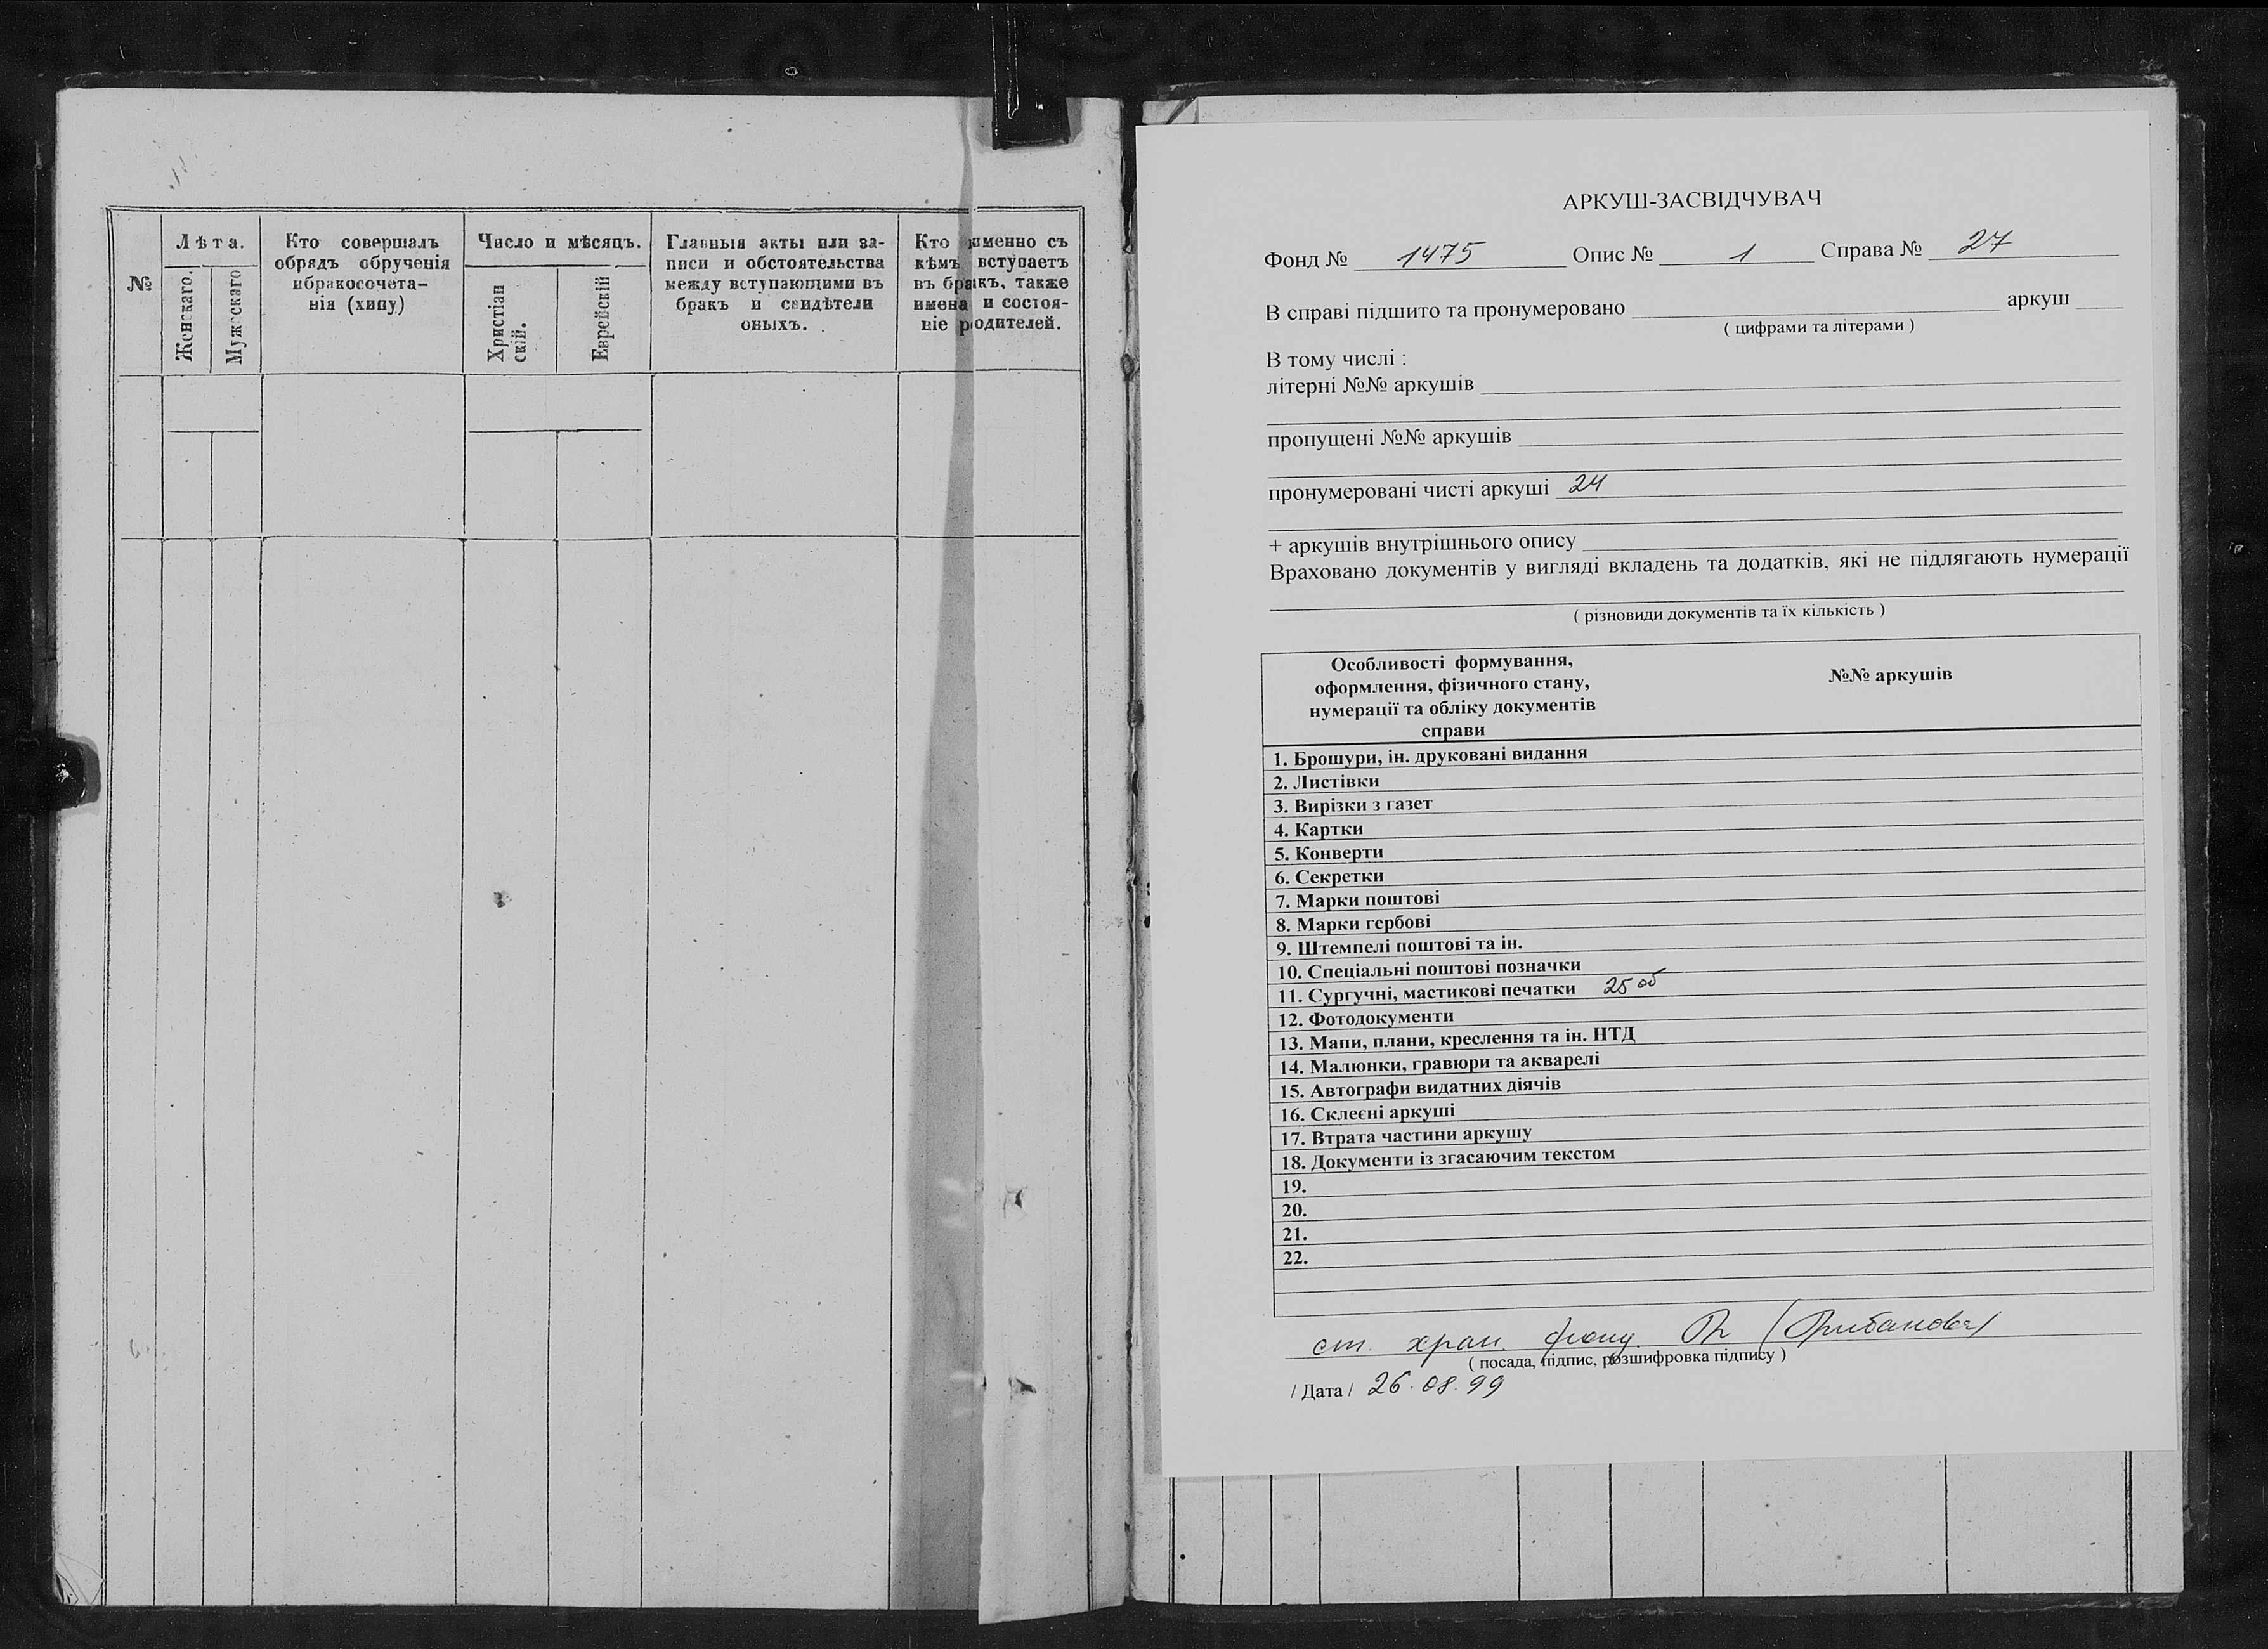 №
Лѣта.
Женскаго.
Мужескаго
Кто совершалъ
обрядъ обрученія
ибракосочета-
нія (хипу)
Число и мѣсяцъ.
Христіан
скій.
Еврейскій
Главныя акты или за-
писи и обстоятельства
между вступающими въ
бракъ и свидѣтели
оныхъ.
Кто именно съ
кѣмъ вступаетъ
въ бракъ, также
имена и состоя-
ніе родителей.
АРКУШ-ЗАСВІДЧУВАЧ
Фонд № 1475 Опис № 1 Справа № 27
В справі підшито та пронумеровано аркуш
( цифрами та літерами )
В тому числі :
літерні №№ аркушів
пропущені №№ аркушів
пронумеровані чисті аркуші 24
+ аркушів внутрішнього опису
Враховано документів у вигляді вкладень та додатків, які не підлягають нумерації
( різновиди документів та їх кількість )
Особливості формування,
оформлення, фізичного стану,
нумерації та обліку документів
справи
№№ аркушів
1. Брошури, ін. друковані видання
2. Листівки
3. Вирізки з газет
4. Картки
5. Конверти
6. Секретки
7. Марки поштові
8. Марки гербові
9. Штемпелі поштові та ін.
10. Спеціальні поштові позначки
11. Сургучні, мастикові печатки 25 об
12. Фотодокументи
13. Мапи, плани, креслення та ін. НТД
14. Малюнки, гравюри та акварелі
15. Автографи видатних діячів
16. Склеєні аркуші
17. Втрата частини аркушу
18. Документи із згасаючим текстом
19.
20.
21.
22.
ст. хран. фонд.
( посада, підпис, розшифровка підпису )
/ Дата / 26.08.99